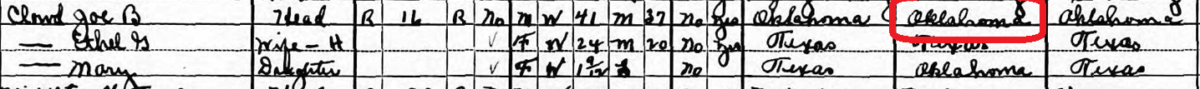 Cloud Joe B Head R 16 R No M W 41 M 37 No Yes Oklahoma Oklahoma Oklahoma
— Ethel G Wife - H ✓ F W 24 M 20 No Yes Texas Texas Texas
— Mary Daughter ✓ F W 1 9/12 S No Texas Oklahoma Texas